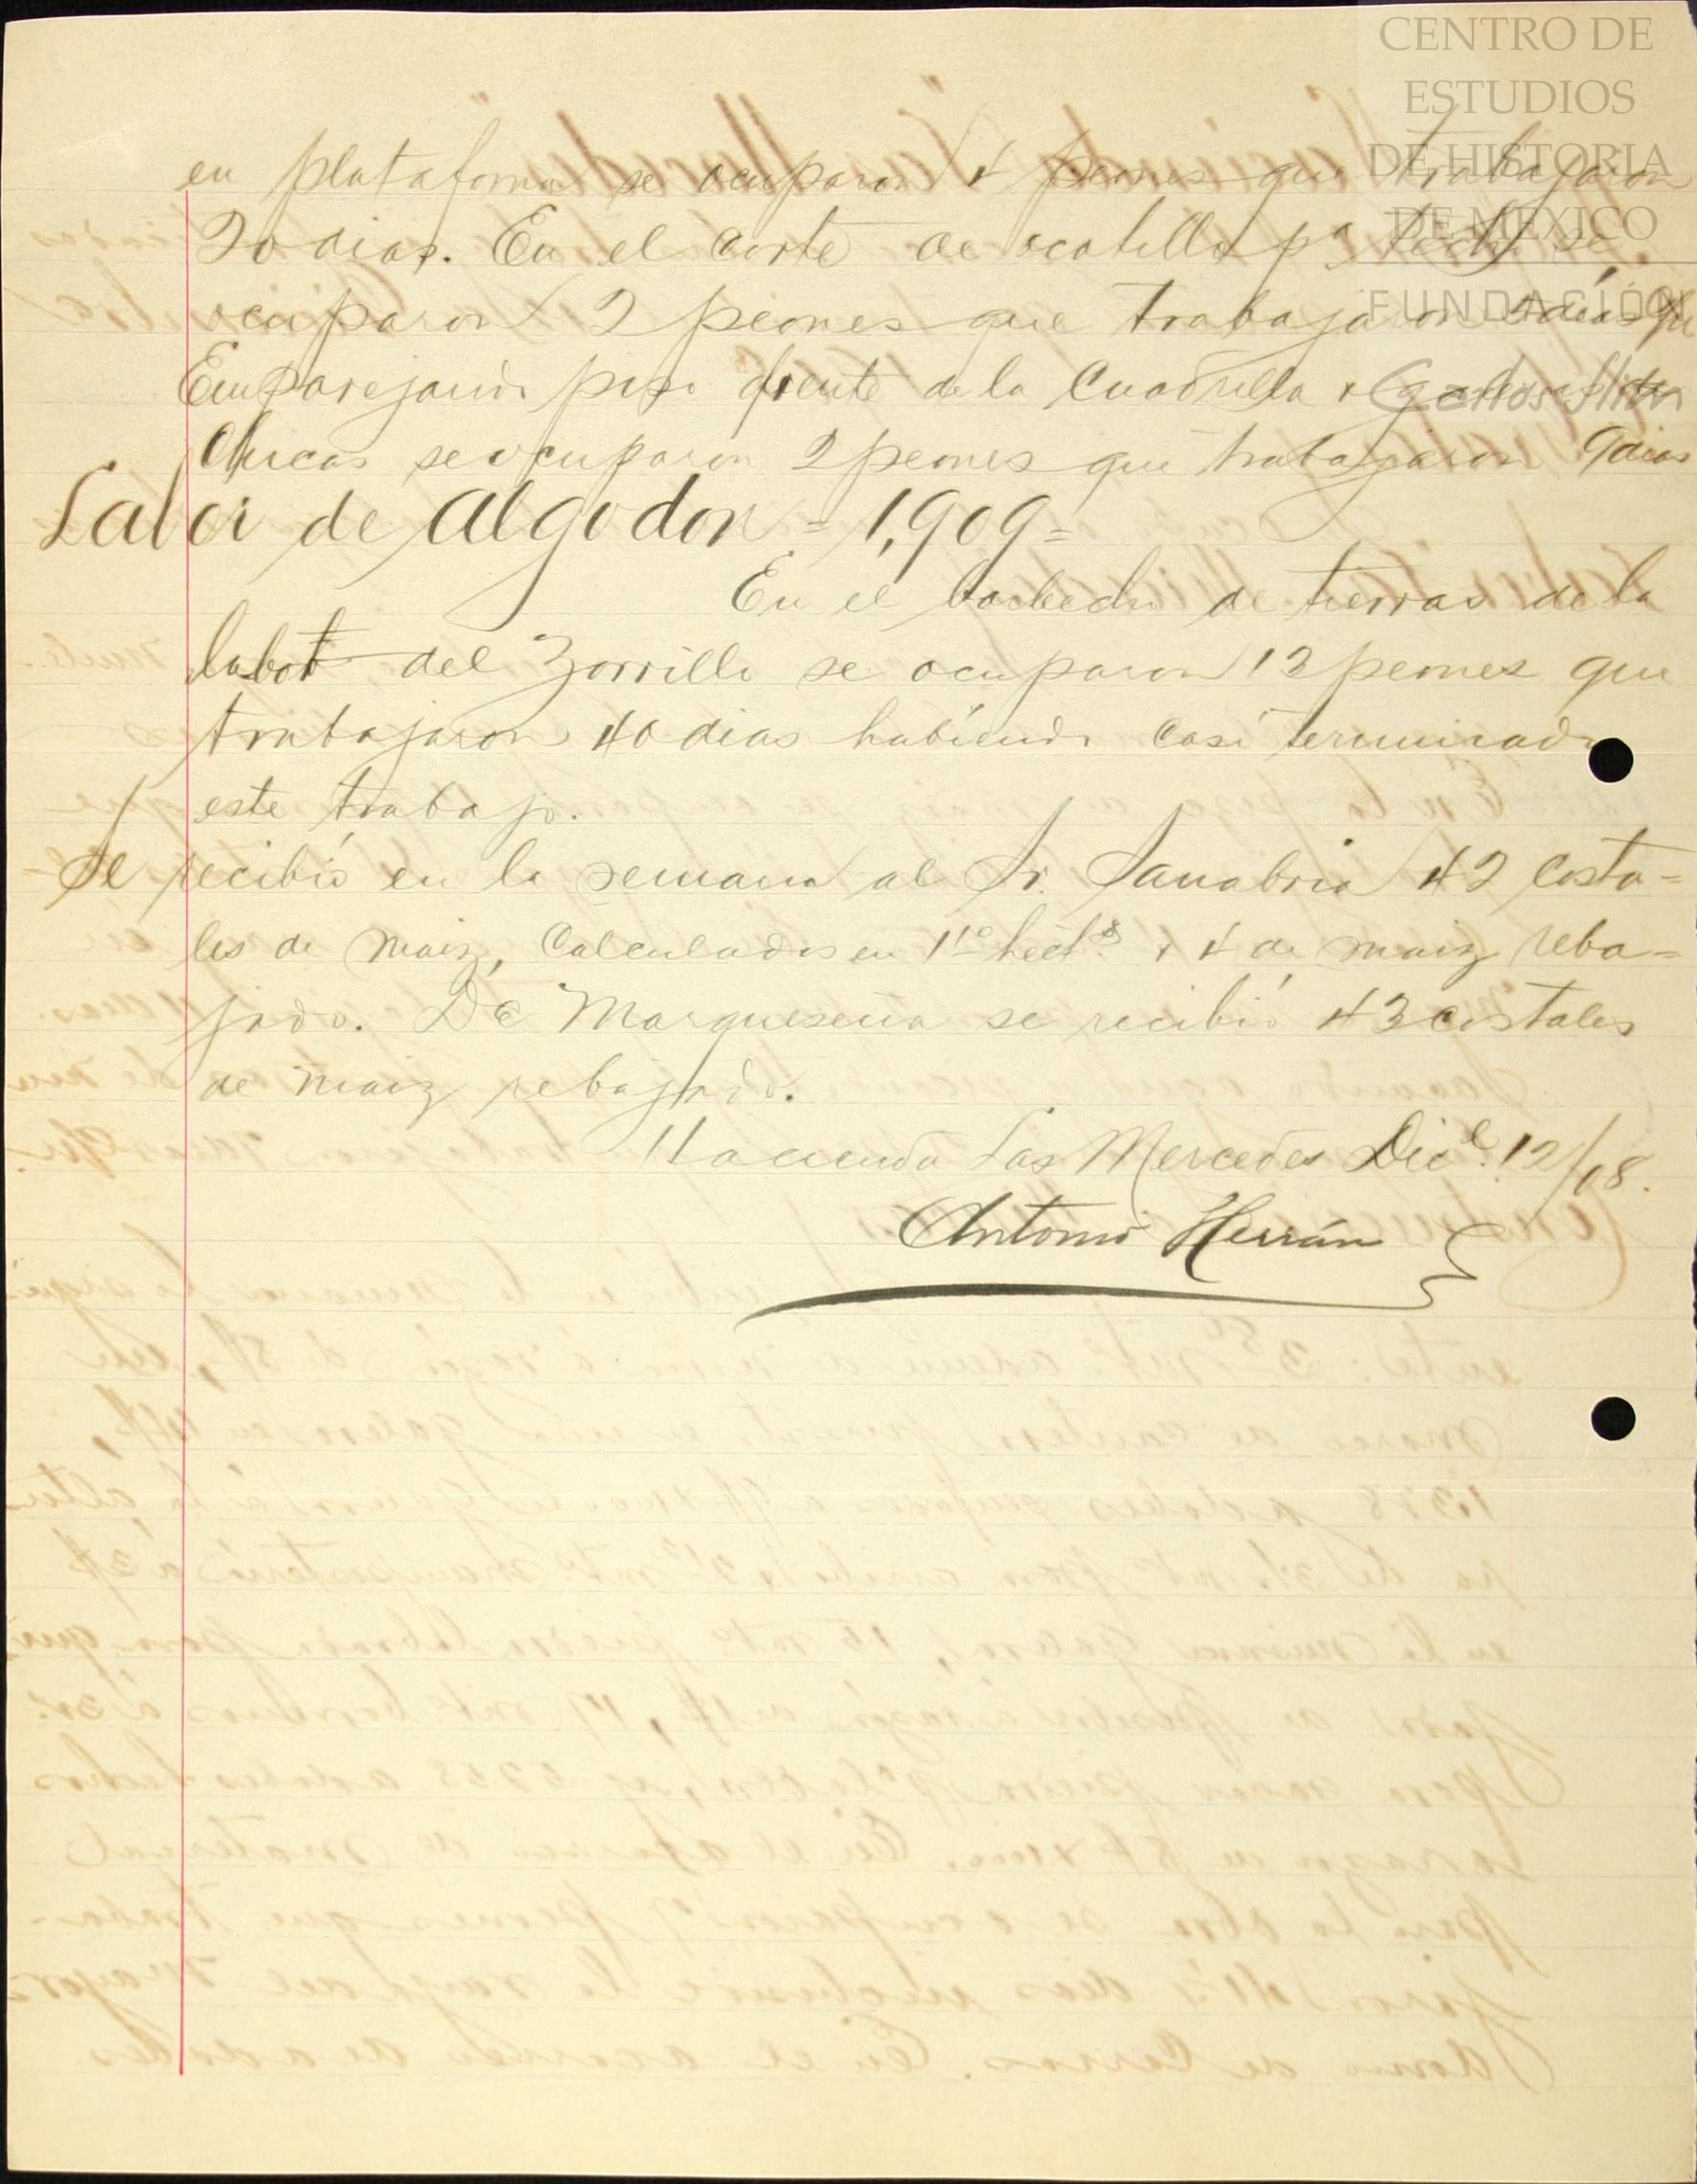 CENTRO DE
ESTUDIOS
DE HISTORIA
DE MÉXICO
FUNDACIÓN
Carlos Slim
en plataforma se ocuparon 4 peones que trabajaron
20 dias. En el corte de ocotillo pª techo se
ocuparon 2 peones que trabajaron dias
Emparejando piso frente de la Cuadrilla y
Chicas se ocuparon 2 peones que trabajaron 9 dias
Labor de Algodon = 1,909 =
En el barbecho de tierras de la
labor del Zorrillo se ocuparon 13 peones que
trabajaron 40 dias habiendo casi terminado
este trabajo.
Se recibió en la semana al Sr. Sanabria 42 costa=
les de maiz, Calculados en hect.s y 4 de maiz reba=
jado. De Marqueseña se recibió 43 costales
de maiz rebajado.
Hacienda Las Mercedes Dice. 12/08.
Antonio Herrán